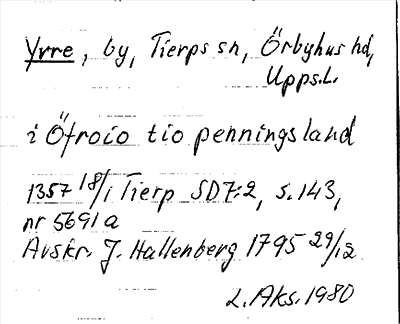 Yvre, by, Tierps sn, Örbyhus hd,
Upps.L.
i Öfroio tio penningsland
1357 18/1 Tierp SD 7:2, s. 143,
nr 5691a
Avskr. J. Hallenberg 1795 29/12
L. Aks. 1980